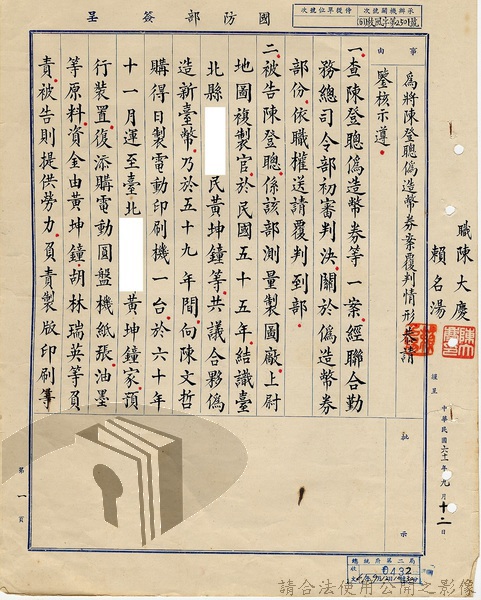 國防部簽呈
承辦機關號次
傳授單位號次
事由
為將陳登聰偽造幣券案覆判情形恭請
鑒核示遵。
職 陳大慶
賴名湯
謹呈
中華民國六十一年九月十二日
一、查陳登聰偽造幣券等一案經聯合勤
務總司令部初審判決關於偽造幣券
部份依職權送請覆判到部。
二、被告陳登聰係該部測量製圖廠上尉
地圖複製官於民國五十五年結識臺
北縣 民黃坤鐘等共議合夥偽
造新臺幣乃於五十九年間向陳文哲
購得日製電動印刷機一台於六十年
十一月運至臺北 黃坤鐘家預
行裝置復添購電動圓盤機紙張油墨
等原料資金由黃坤鐘胡林瑞英等負
責被告則提供勞力負責製版印刷等
批示
第一頁
總統府第二局
收
0432
請合法使用公開之影像